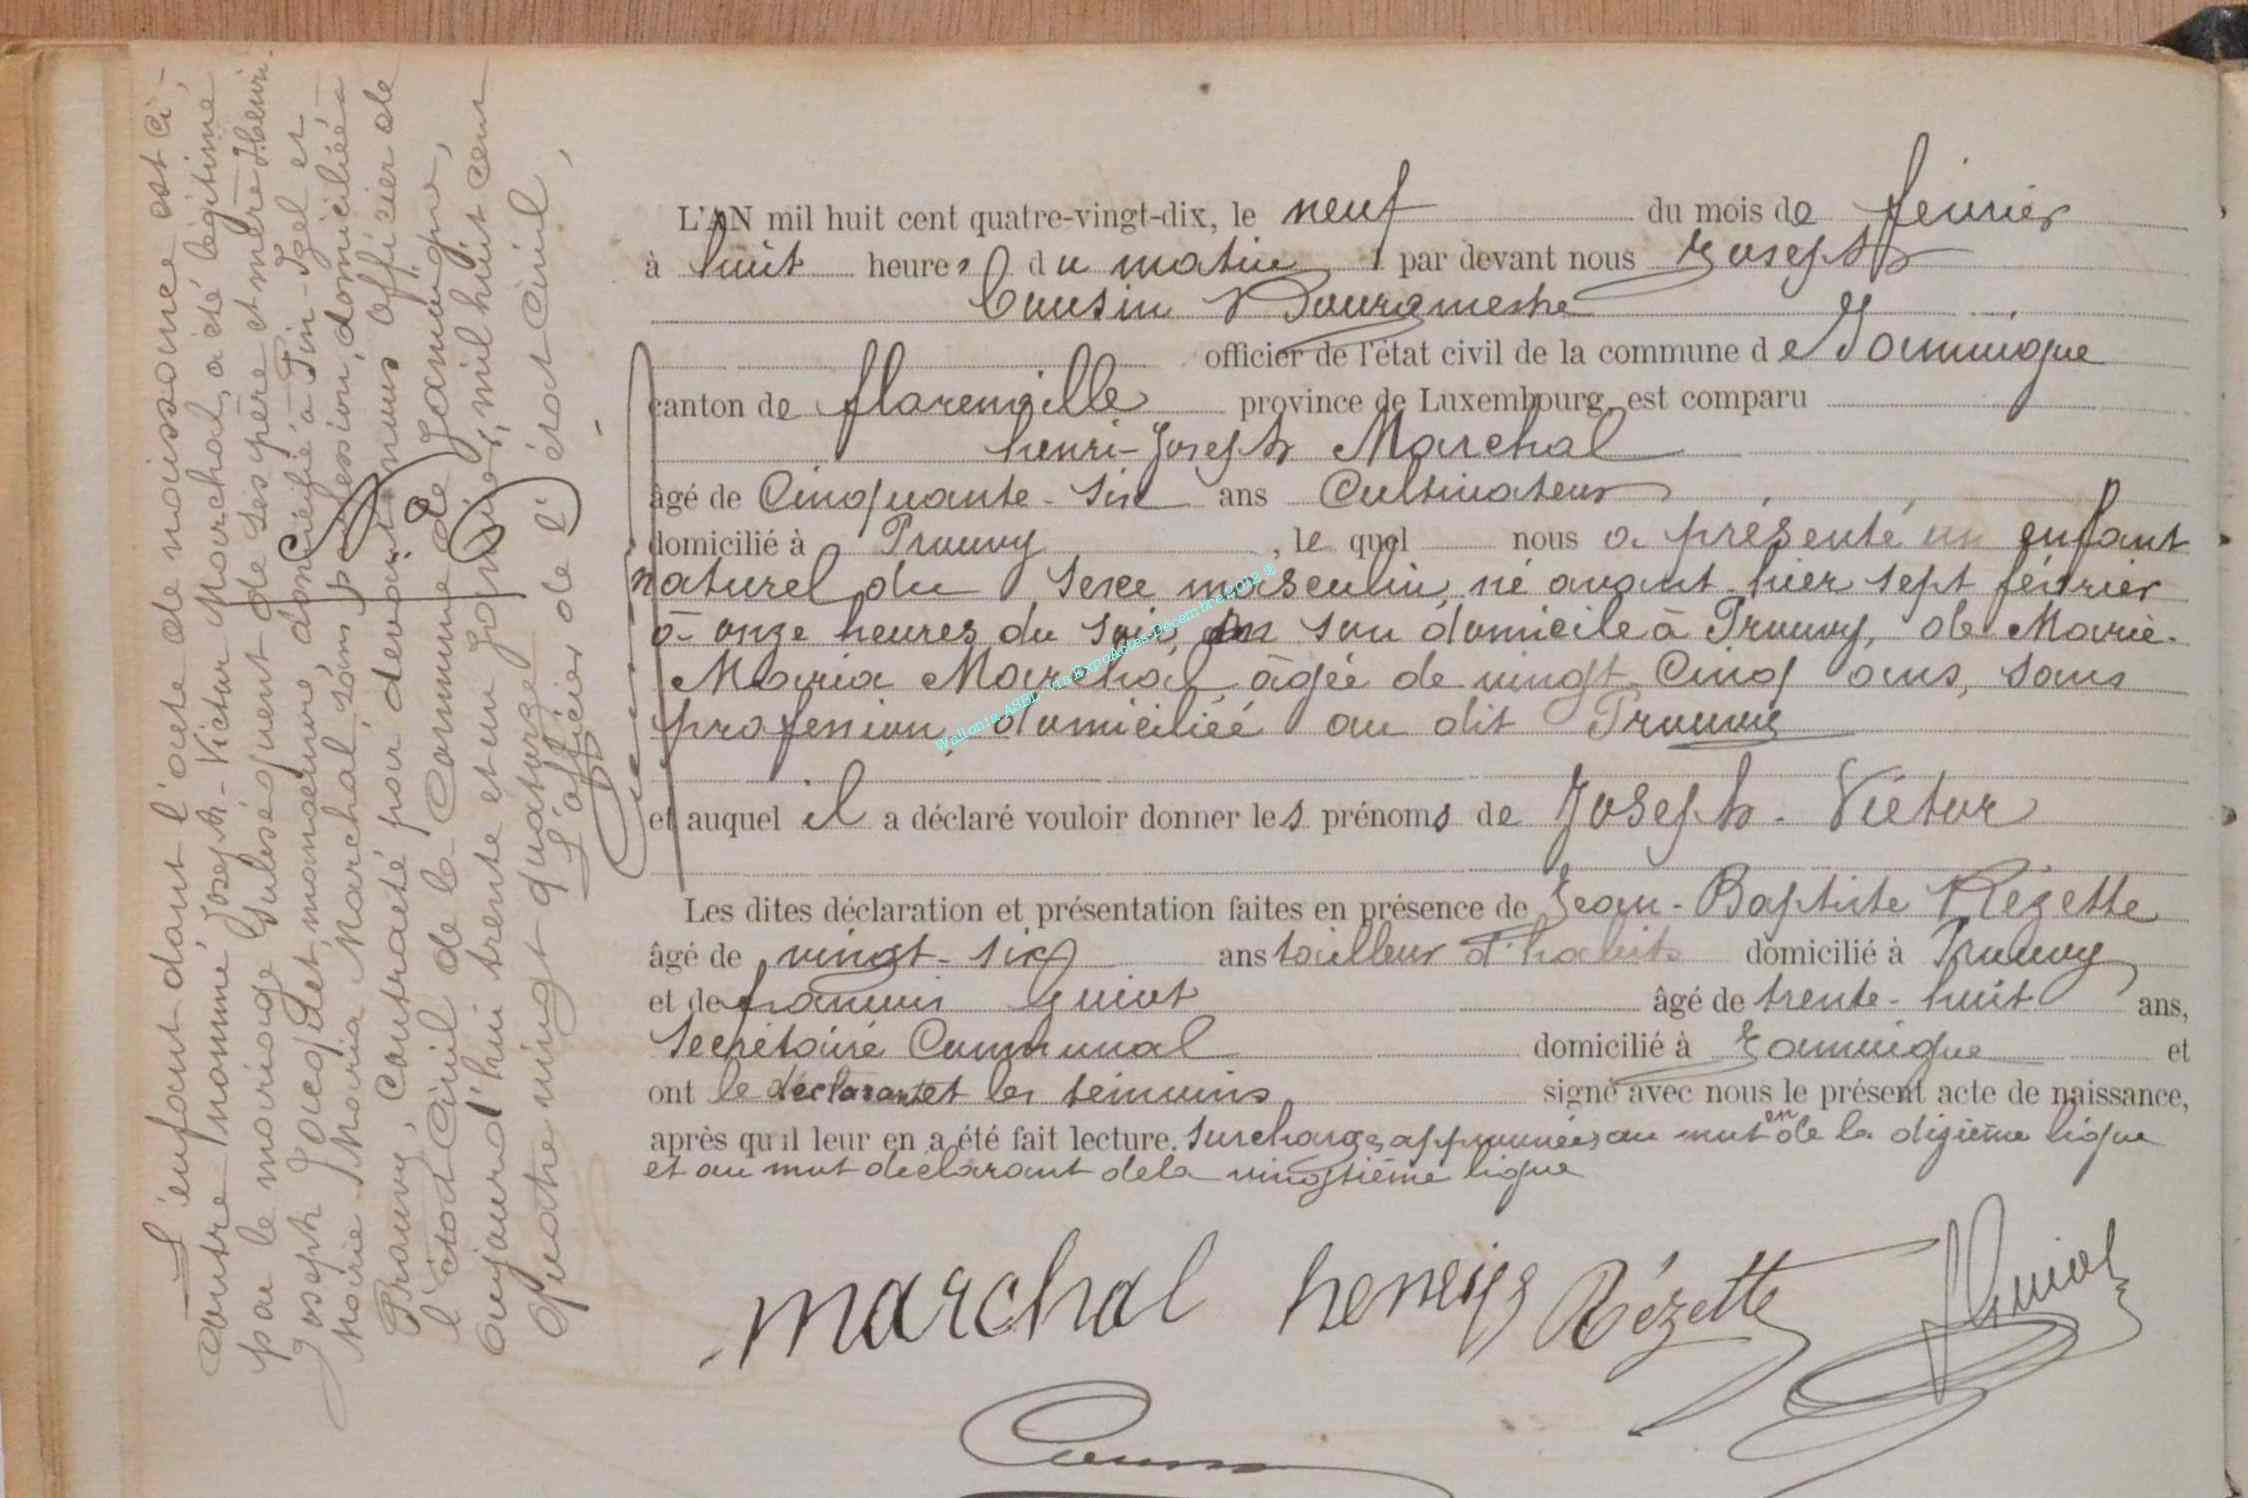 L'AN mil huit cent quatre-vingt-dix, le neuf du mois de février
à huit heures du matin par devant nous Joseph
Cousin Bourgmestre
officier de l'état civil de la commune de Jamoigne
canton de florenville province de Luxembourg, est comparu
henri-Joseph Marchal
âgé de Cinquante-six ans Cultivateur
domicilié à Prouvy, le quel nous a présenté un enfant
naturel du sexe masculin, né avant-hier sept février
à onze heures du soir, en son domicile à Prouvy, de Marie-
Maria Marchal, âgée de vingt-cinq ans, sans
profession, domiciliée au dit Prouvy
et auquel il a déclaré vouloir donner les prénoms de Joseph-Victor
Les dites déclaration et présentation faites en présence de Jean-Baptiste Rézette
âgé de vingt-six ans tailleur d'habits domicilié à Prouvy
et de françois Guiot âgé de trente-huit ans,
Secrétaire Communal domicilié à Jamoigne et
ont le déclarant et les témoins signé avec nous le présent acte de naissance,
après qu'il leur en a été fait lecture. Surcharges approuvées au mot en de la dixième ligne
et au mot déclarant de la vingtième ligne
marchal henri Rézette Guiot
Cousin
L'enfant dont l'acte de naissance est ci-
contre, nommé Joseph-Victor Marchal, a été légitimé
par le mariage subséquent de ses père et mère Henri-
Joseph Jacquet, manoeuvre, domicilié à Pin-Izel et
Marie Maria Marchal, sans profession, domiciliée à
Prouvy, Contracté pour devant nous Officier de
l'état Civil de la Commune de Jamoigne,
aujourd'hui trente et un Janvier, mil huit cent
quatre vingt quatorze
L'officier de l'état Civil,
Cousin
Wallonia ASBL via ExpoActes-Décembre